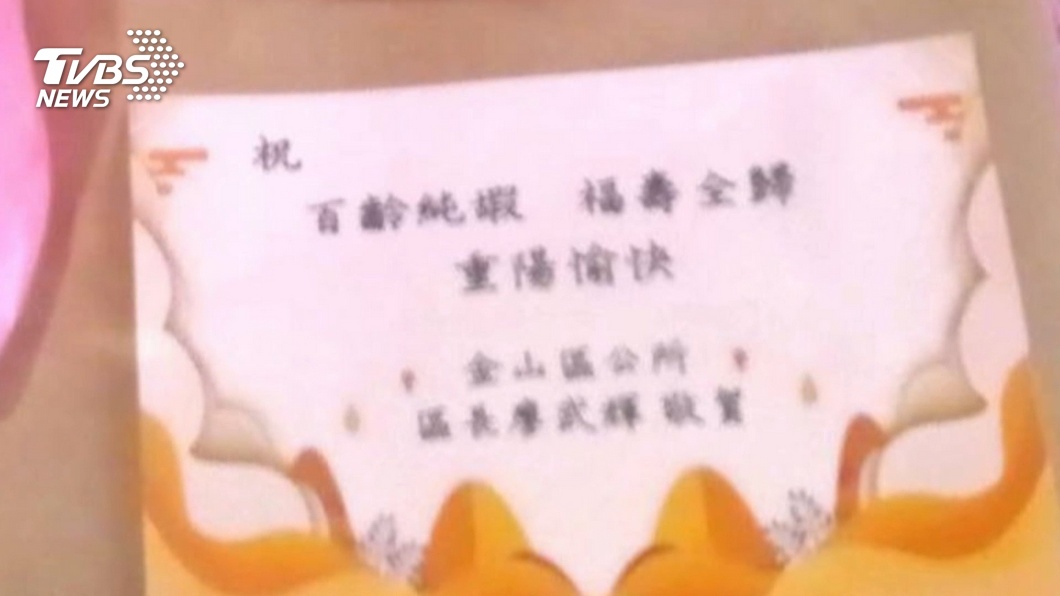 TVBS
NEWS
祝
百齡純嘏 福壽全歸
重陽愉快
金山區公所
區長廖武輝 敬賀